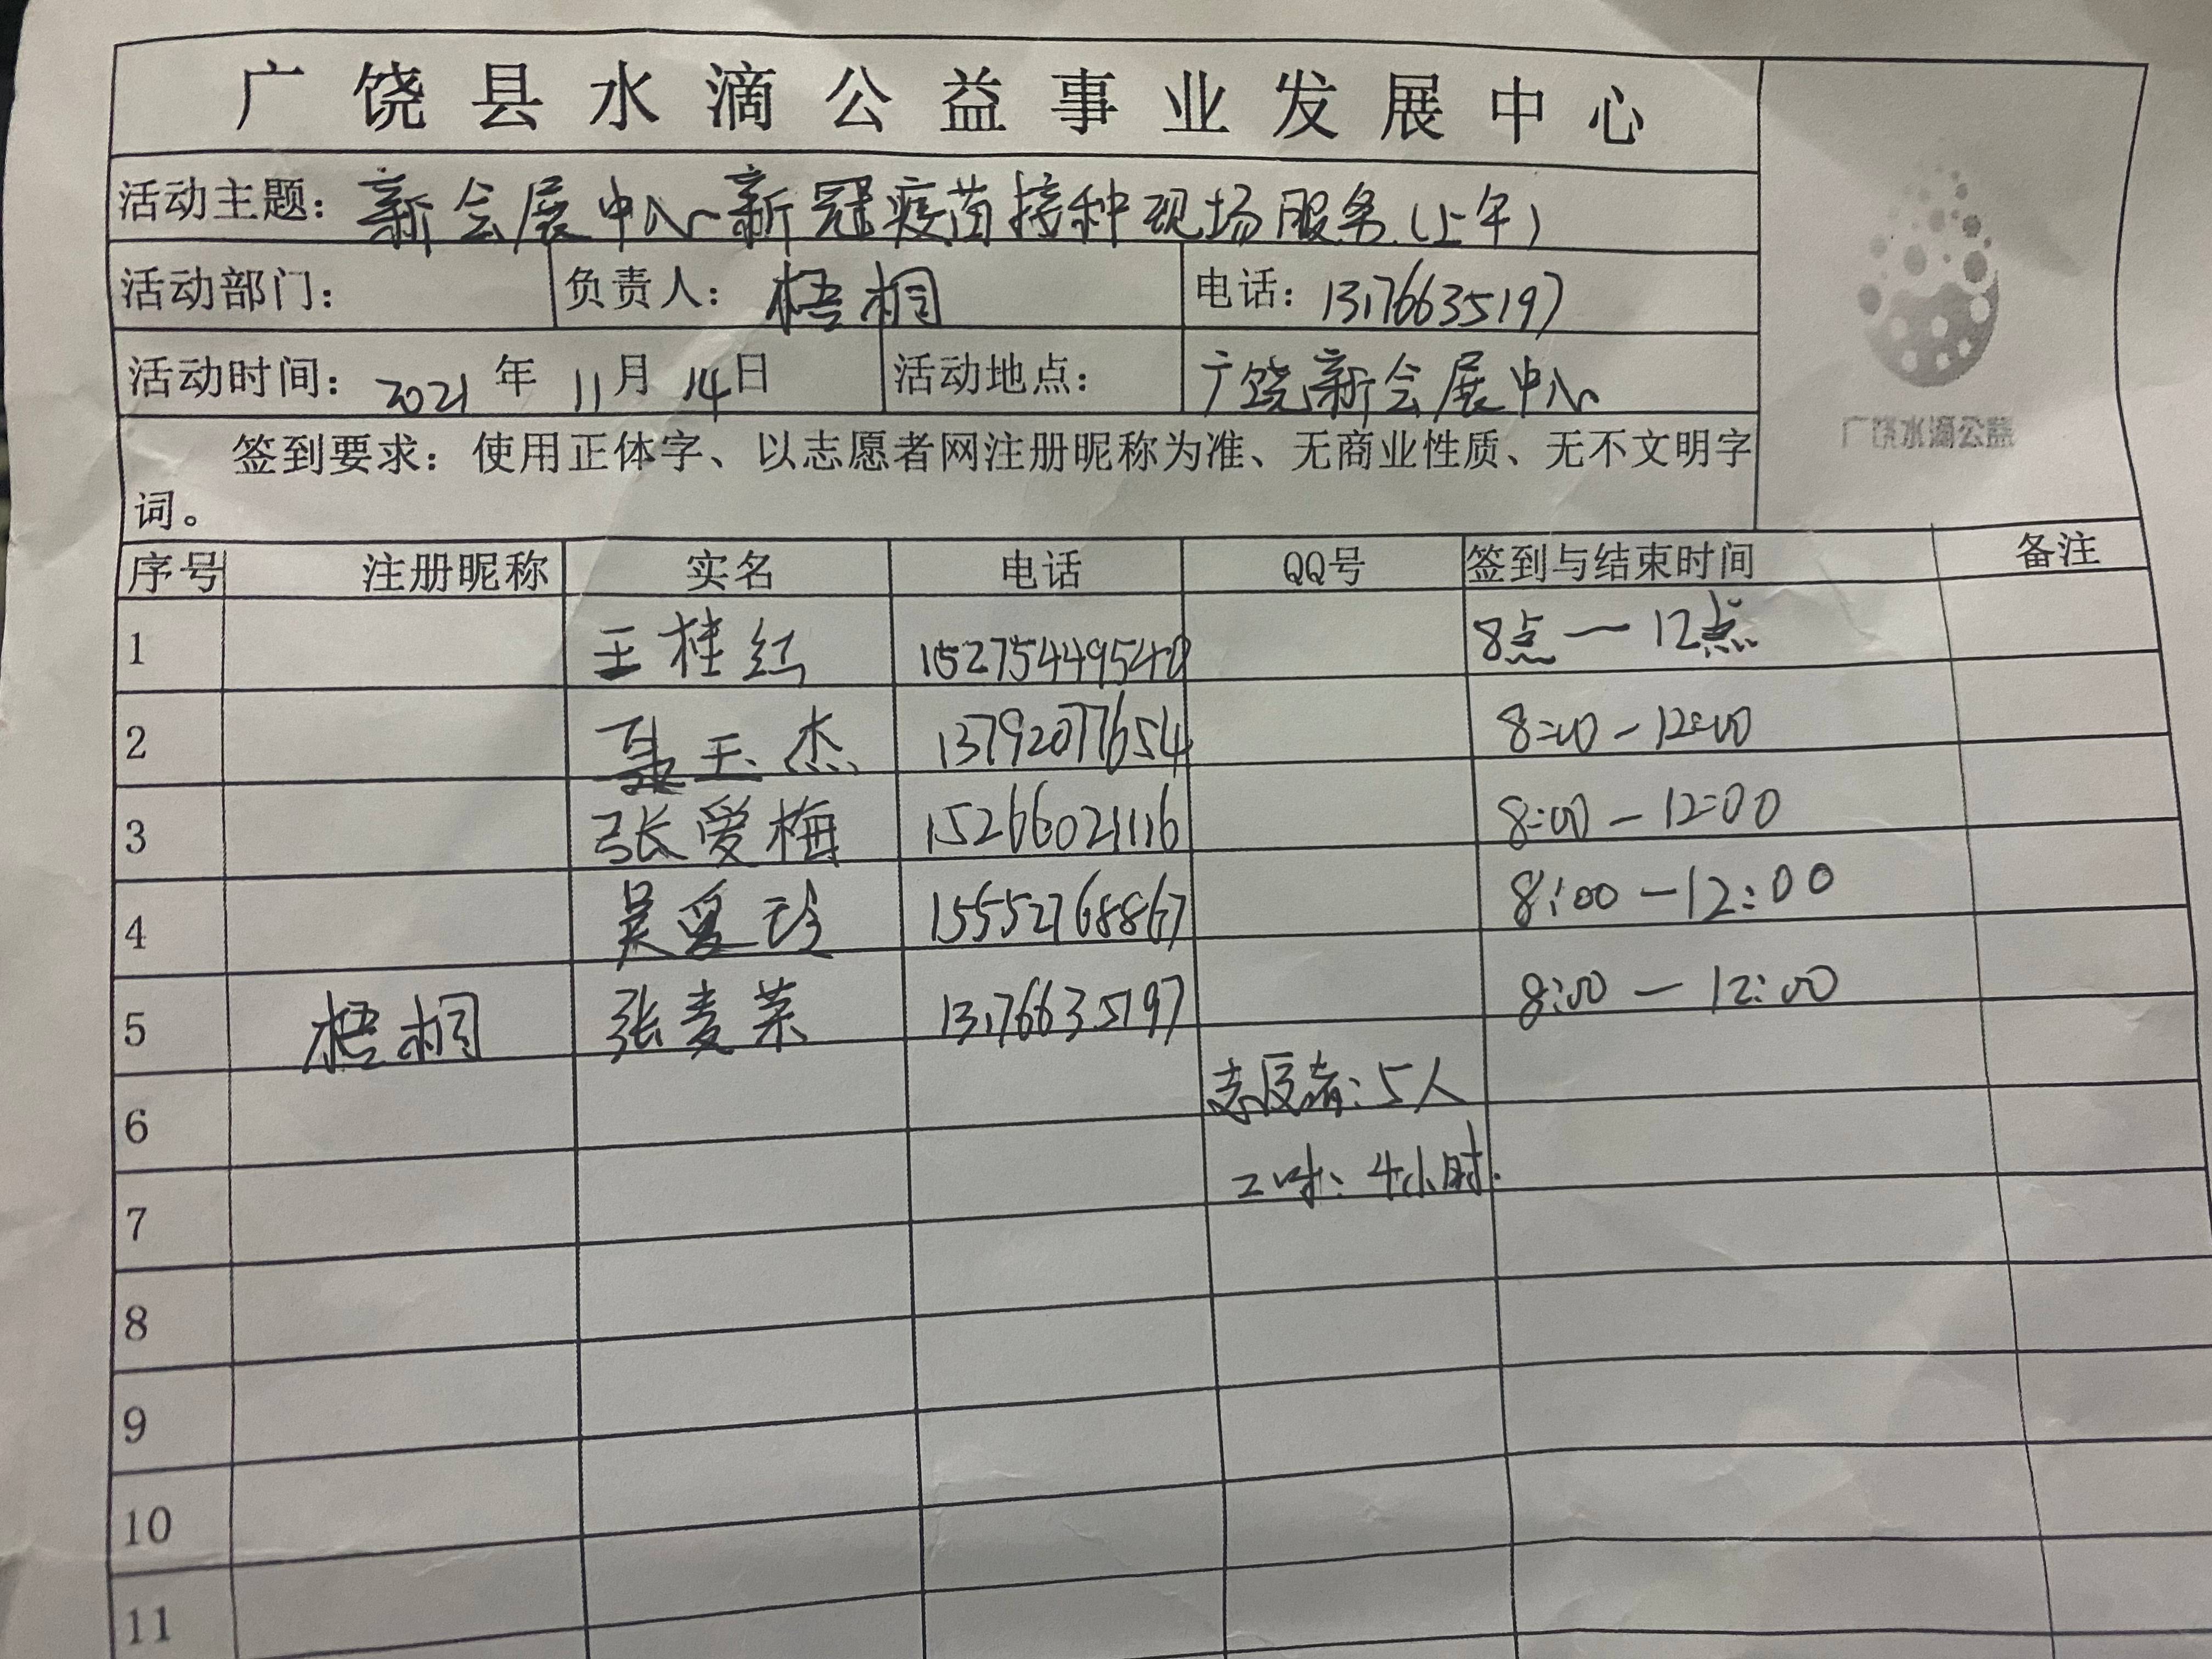 广饶县水滴公益事业发展中心
活动主题：新会展中心新冠疫苗接种现场服务（上午）
活动部门： 负责人：梧桐 电话：13176635197
活动时间：2021年11月14日 活动地点：广饶新会展中心
广饶水滴公益
签到要求：使用正体字、以志愿者网注册昵称为准、无商业性质、无不文明字
词。
序号 注册昵称 实名 电话 QQ号 签到与结束时间 备注
1 王桂红 15275449540 8点一12点
2 聂玉杰 13792077654 8:00-12:00
3 张爱梅 15266021116 8:00-12:00
4 吴爱珍 15552768867 8:00-12:00
5 梧桐 张麦荣 13176635197 8:00-12:00
6 志愿者:5人
7 工时:4小时.
8
9
10
11